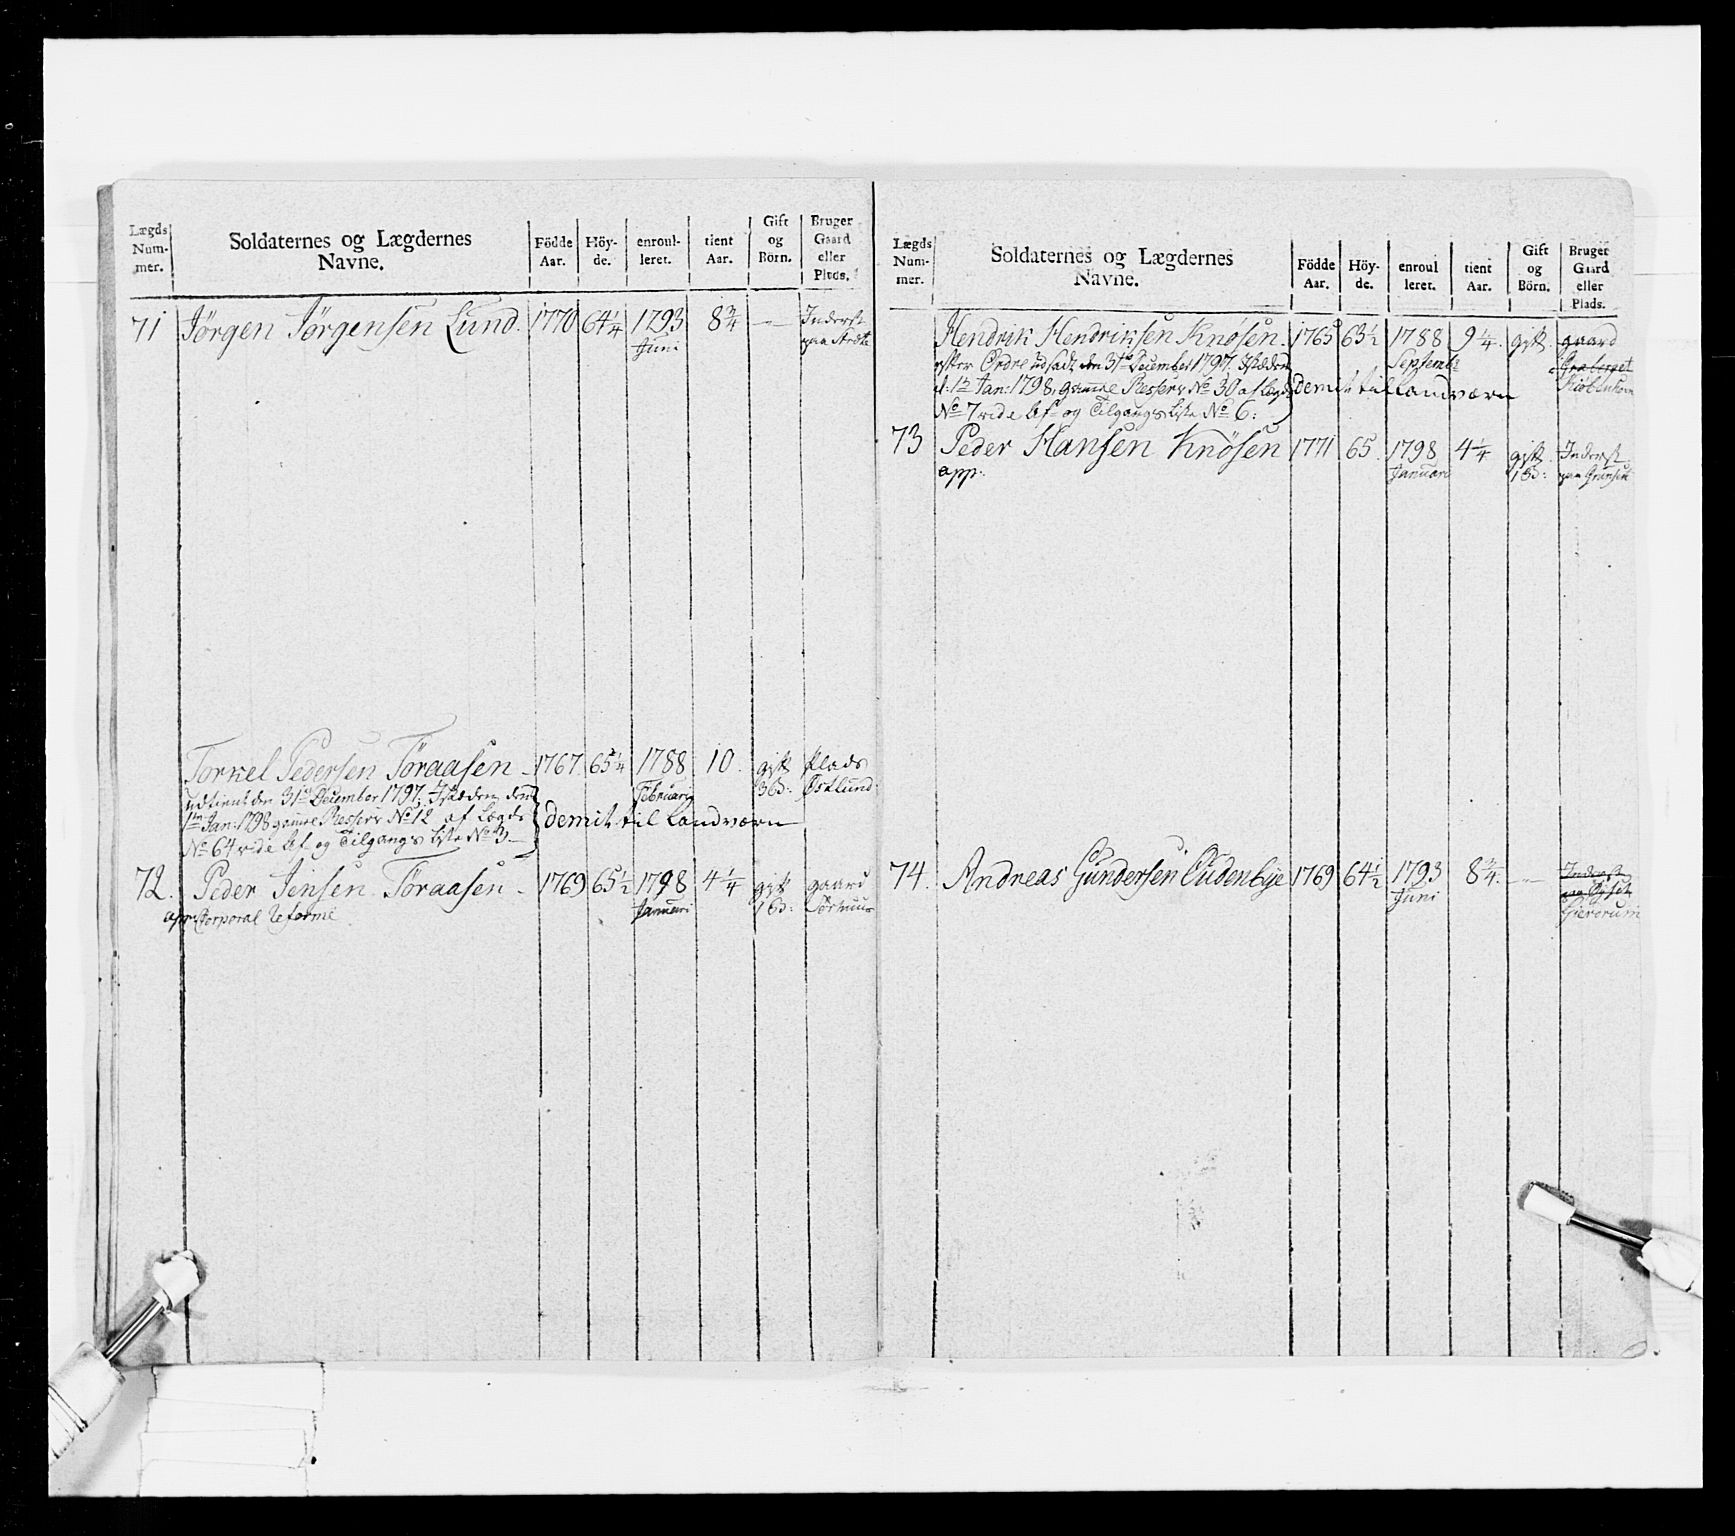 Lægds Num- mer.
Soldaternes og Lægdernes Navne.
Födde Aar.
Höy- de.
enroul- leret.
tient Aar.
Gift og Börn.
Bruger Gaard eller Plads.
71 Jørgen Jørgensen Lund. 1770 64 1/4 1793 8 3/4 — Inderst
Juni paa
Torkel Pedersen Töraasen 1767 65 1/4 1788 10 gift Plads
udtient den 31te December 1797, Istæden den Februarij 3 B: Östlund
1te Jan: 1798 gamle Reserv No 12 af Lægds demit til Landværn
No 64 vide Af og Tilgangs Liste No 3
72. Peder Jensen Töraasen 1769 65 1/2 1798 4 1/4 gift gaard
app: Corporal Reformé Januari 1 B:
Lægds Num- mer.
Soldaternes og Lægdernes Navne.
Födde Aar.
Höy- de.
enroul leret.
tient Aar.
Gift og Börn.
Bruger Gaard eller Plads.
Hendrik Hendriksen Knösen. 1765 63 1/2 1788 9 1/4 gift gaard
efter Ordre udsadt den 31te December 1797. Istæden Septembr
d: 1te Jan: 1798, gamle Reserv No 30 af Lægds demit til Landværn
No 7 vide Af og Tilgangs Liste No 6:
73 Peder Hansen Knösen 1771 65. 1798 4 1/4 gift Inderst
app: Januari 1 B: paa
74. Andreas Gundersen Oudenbye 1769 64 1/2 1793 8 3/4 — Inderst
Juni paa